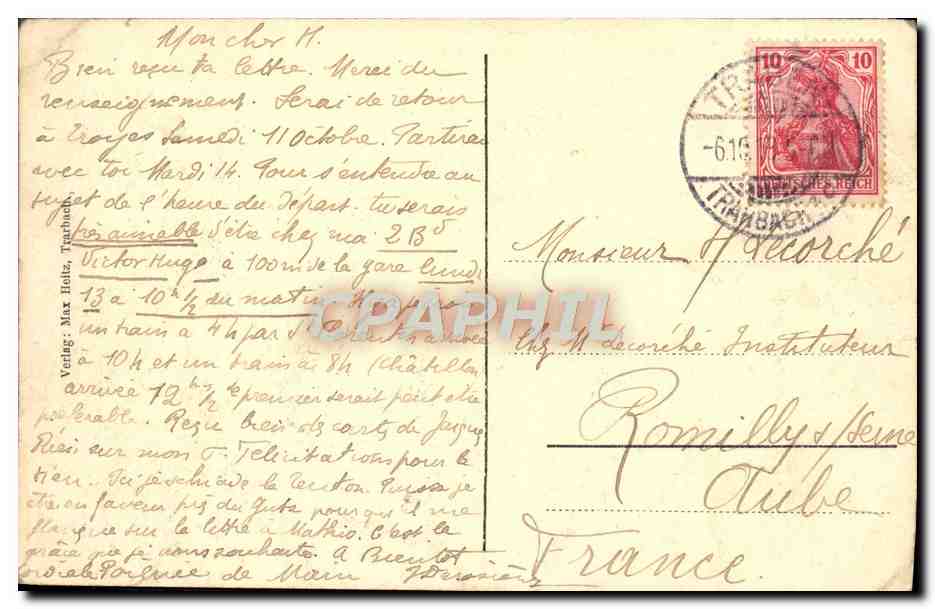 Mon cher H.
Bien reçu ta lettre. Merci du
renseignement. Serai de retour
à Troyes Samedi 11 Octobre. Partirai
avec toi Mardi 14. Pour s'entendre au
sujet de l'heure du départ. tu serais
très aimable d'être chez ma 2 Bd
Victor Hugo à 100m de la gare lundi
13 à 10h 1/2 du matin.
un train à 4h par
à 10h et un train à 8h (Châtillon
arrivée 12h 1/2 le premier serait peut être
préférable. Reçu bien des cartes de
sur mon Félicitations pour le
tien. Ici je Puissé je
être en faveur près du pourquoi il me
sur la lettre à Mathis. C'est la
grâce que je vous souhaite. A Bientôt
cordiale Poignée de Main
Verlag: Max Holtz, Trarbach.
10 10
DEUTSCHES REICH
TRARBACH
-6.10
Monsieur H Décorché
Chez Mr Décorché Instituteur
Romilly s/Seine
Aube
France
CPAPHIL